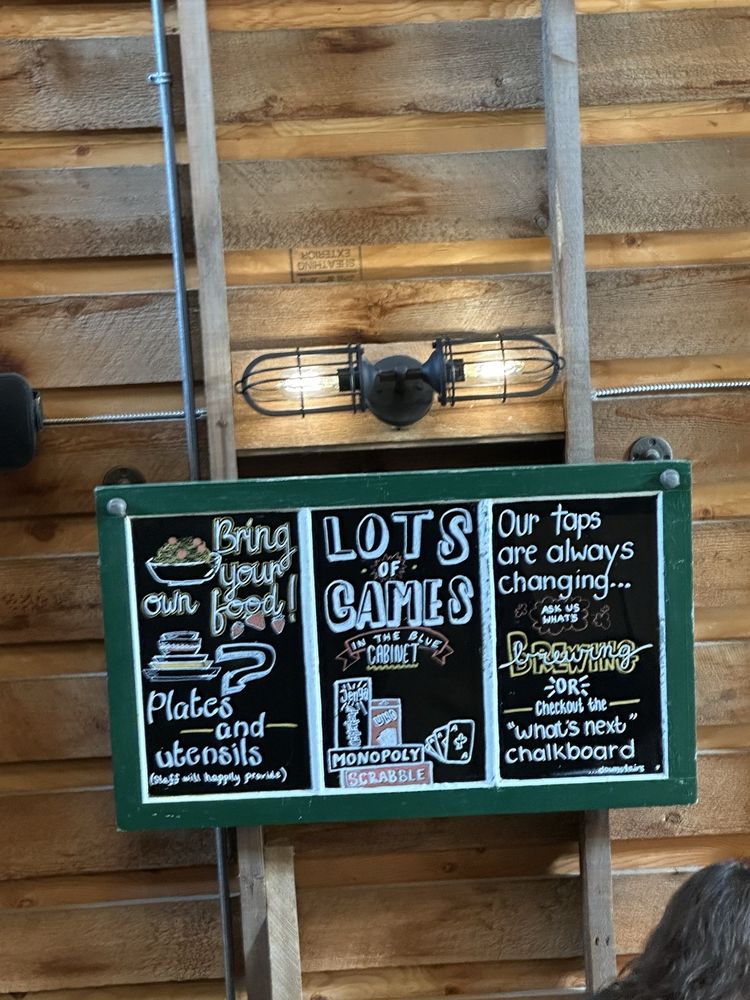 SHEATHING
EXTERIOR
Bring
your
own food!
Plates
and
utensils
(staff will happily provide)
LOTS
OF
GAMES
IN THE BLUE
CABINET
Jenga
UNO
MONOPOLY
SCRABBLE
Our taps
are always
changing...
ASK US
WHAT'S
BREWING
OR
Checkout the
"what's next"
chalkboard
...downstairs